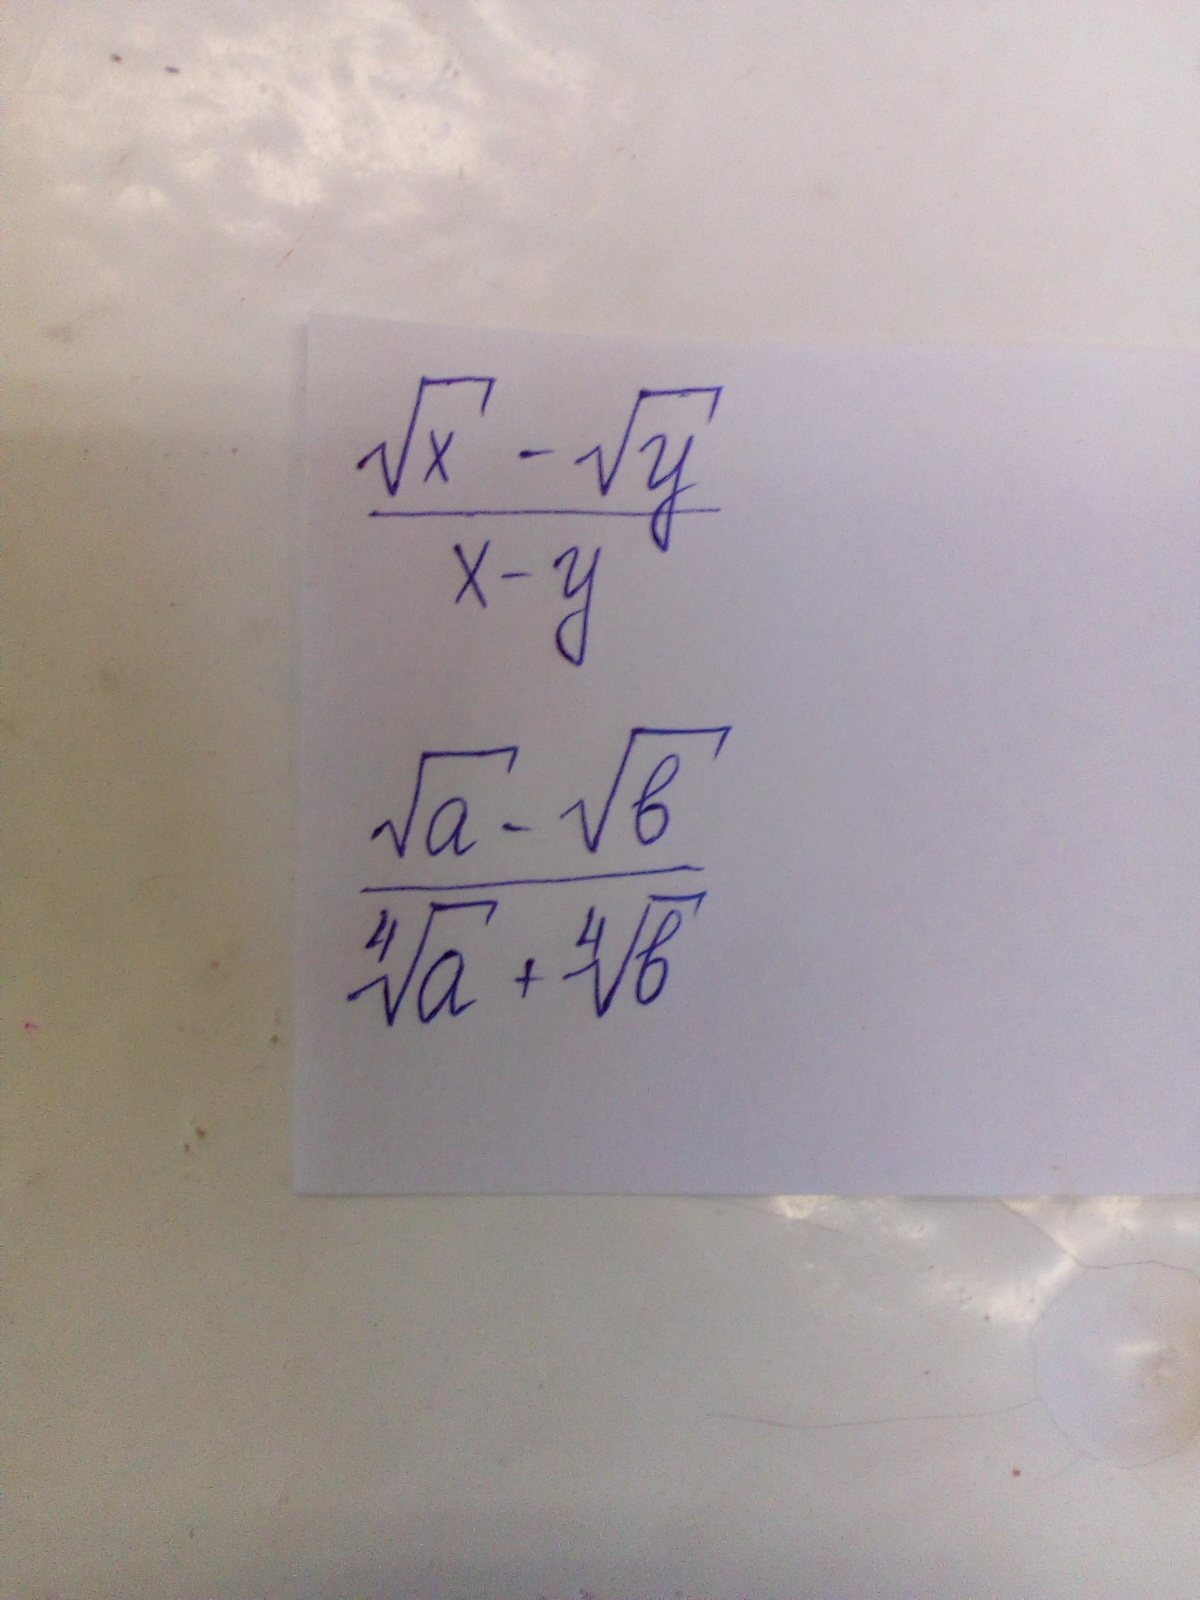 √x - √y
x - y
√a - √b
∜a + ∜b